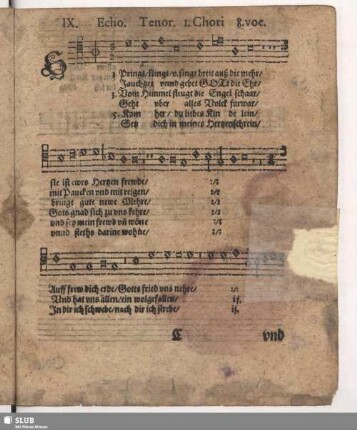 IX. Echo. Tenor. 1. Chori 8. voc.
1. Springt/ klingt/ v. singt breit auß die mehr/
Jauchzet vnnd gebet GOtt die Ehr/
3. Vom Himmel fleugt die Engel schaar/
Geht vber alles Volck furwar/
5. Kom her/ du liebes Kin de lein/
Sey dich in meines Hertzenschrein/
sie ist ewrs Hertzen frewde/
mit Paucken vnd mit reigen/
bringt gute newe Mehre/
Gots gnad sich zu vns kehre/
vnd sey mein frewd vñ wöne
vnnd steths darinn wohne/
Auff frew dich erde/ Gotts fried vns nehre/
Und hat vns allen/ ein wolgefallen/ ij.
In dir ich schwebe/ nach dir ich strebe/ ij.
C vnd
SLUB